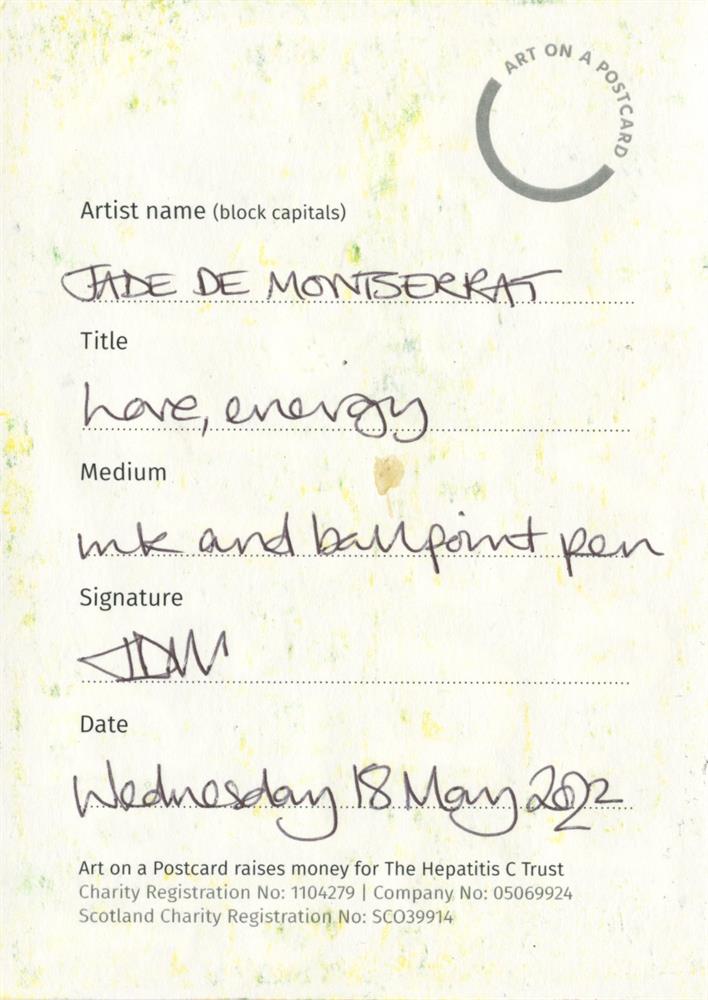 ART ON A POSTCARD
Artist name (block capitals)
JADE DE MONTSERRAT
Title
have, energy
Medium
ink and ballpoint pen
Signature
JDM
Date
Wednesday 18 May 2022
Art on a Postcard raises money for The Hepatitis C Trust
Charity Registration No: 1104279 | Company No: 05069924
Scotland Charity Registration No: SCO39914